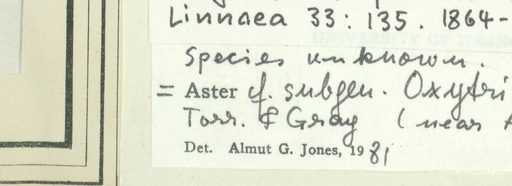 Linnaea 33: 135. 1864-
species unknown.
= Aster cf. subgen. Oxytri
Torr. & Gray (near A
Det. Almut G. Jones, 1981